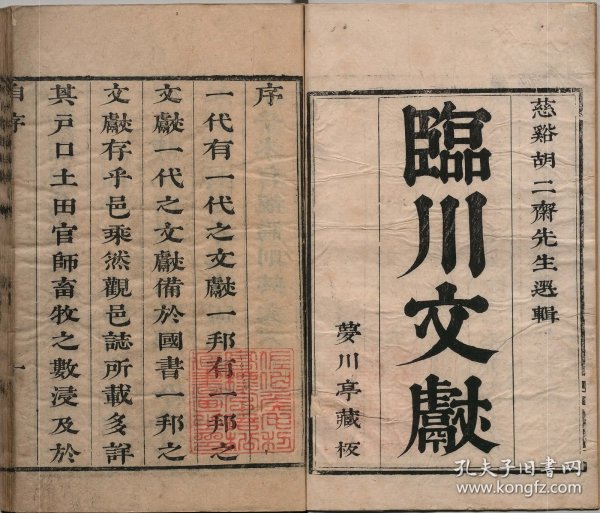 慈谿胡二齋先生選輯
臨川文獻
夢川亭藏板
序
一代有一代之文獻一邦有一邦之
文獻一代之文獻備於國書一邦之
文獻存乎邑乘然觀邑誌所載多詳
其戸口土田官師畜牧之數浸及於
自序
一
孔夫子旧书网
www.kongfz.com